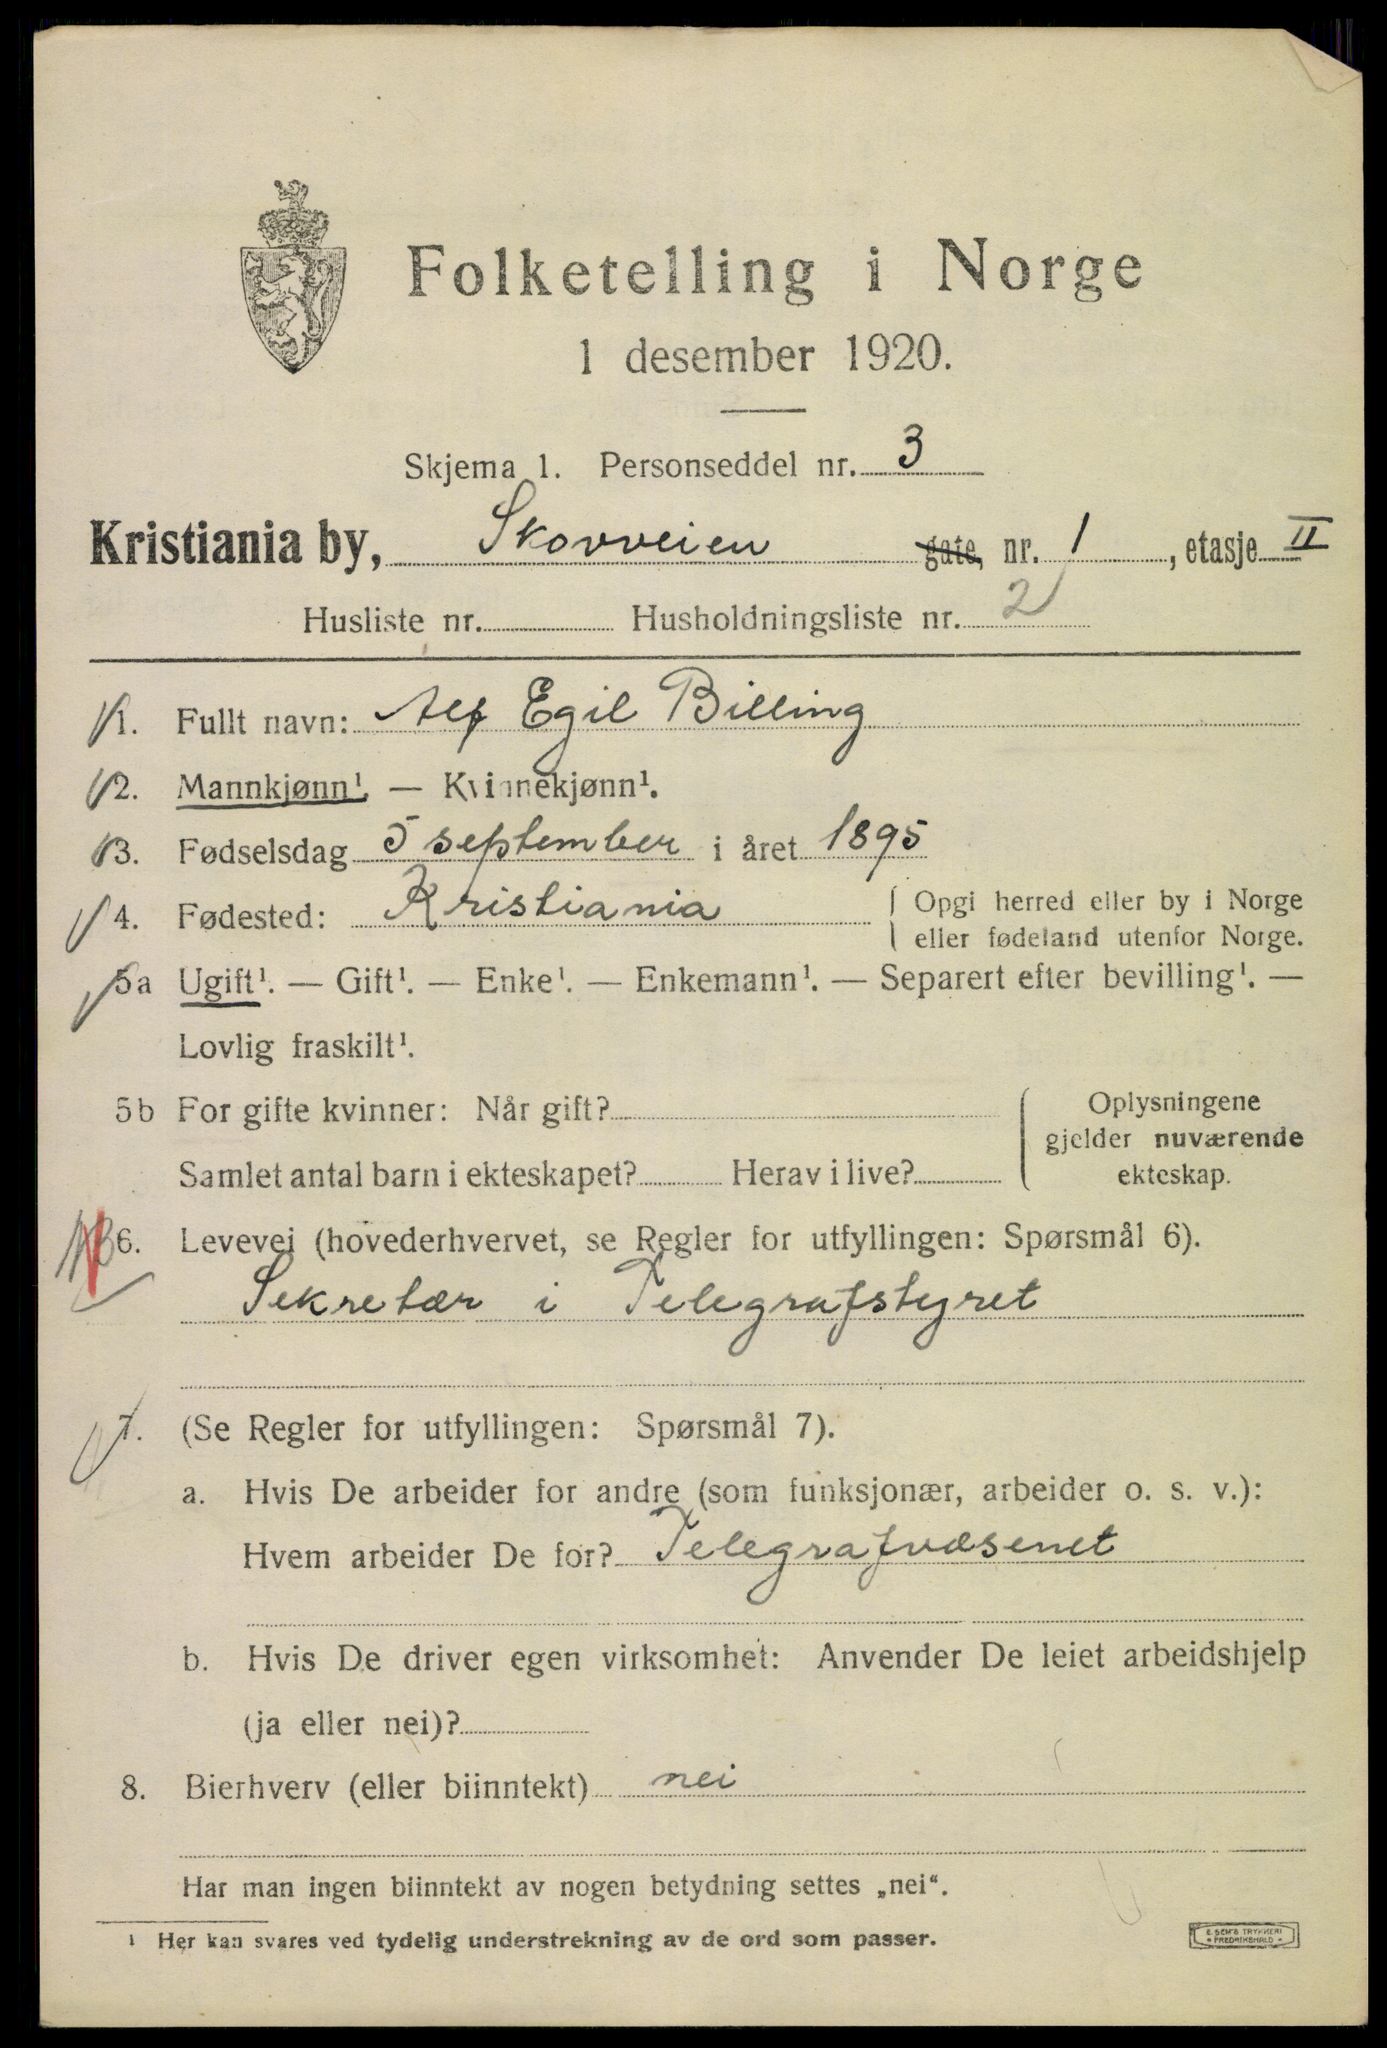 Folketelling i Norge
1 desember 1920.
Skjema 1. Personseddel nr. 3
Kristiania by, Skovveien gate, nr. 1, etasje II
Husliste nr. Husholdningsliste nr. 2
1. Fullt navn: Alf Egil Billing
2. Mannkjønn¹ — Kvinnekjønn¹.
3. Fødselsdag 5 september i året 1895
4. Fødested: Kristiania
Opgi herred eller by i Norge
eller fødeland utenfor Norge.
5a Ugift¹. — Gift¹. — Enke¹. — Enkemann¹. — Separert efter bevilling¹. —
Lovlig fraskilt¹.
5b For gifte kvinner: Når gift?
Samlet antal barn i ekteskapet? Herav i live?
Oplysningene
gjelder nuværende
ekteskap.
6. Levevei (hovederhvervet, se Regler for utfyllingen: Spørsmål 6).
Sekretær i Telegrafstyret
7. (Se Regler for utfyllingen: Spørsmål 7).
a. Hvis De arbeider for andre (som funksjonær, arbeider o. s. v.):
Hvem arbeider De for? Telegrafvæsenet
b. Hvis De driver egen virksomhet: Anvender De leiet arbeidshjelp
(ja eller nei)?
8. Bierhverv (eller biinntekt) nei
Har man ingen biinntekt av nogen betydning settes „nei“.
¹ Her kan svares ved tydelig understrekning av de ord som passer.
E. SEM'S TRYKKERI
FREDRIKSHALD